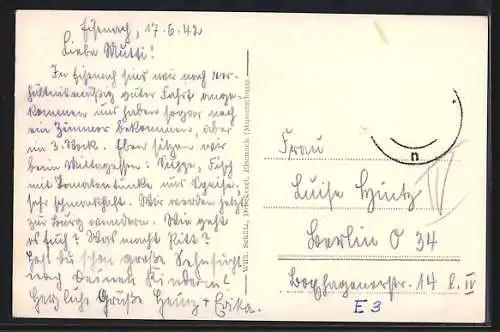 Eisenach, 17.6.42
Liebe Mutti!
In Eisenach sind wir nach ver-
hältnismäßig guter Fahrt ange-
kommen und haben sogar noch
ein Zimmer bekommen, aber
im 3. Stock. Eben sitzen wir
beim Mittagessen: Suppe, Fisch
mit Tomatentunke und Speise,
sehr schmackhaft. Wir werden jetzt
zur Burg wandern. Wie geht
es Euch? Was macht Kitt?
Hast Du schon große Sehnsucht
nach Deinen Kindern?
Herzliche Grüße Heinz + Erika.
Wilh. Schütz, Druckerei, Eisenach
n
Frau
Luise
Berlin O 34
Kopfhagenerstr. 14 IV
E 3